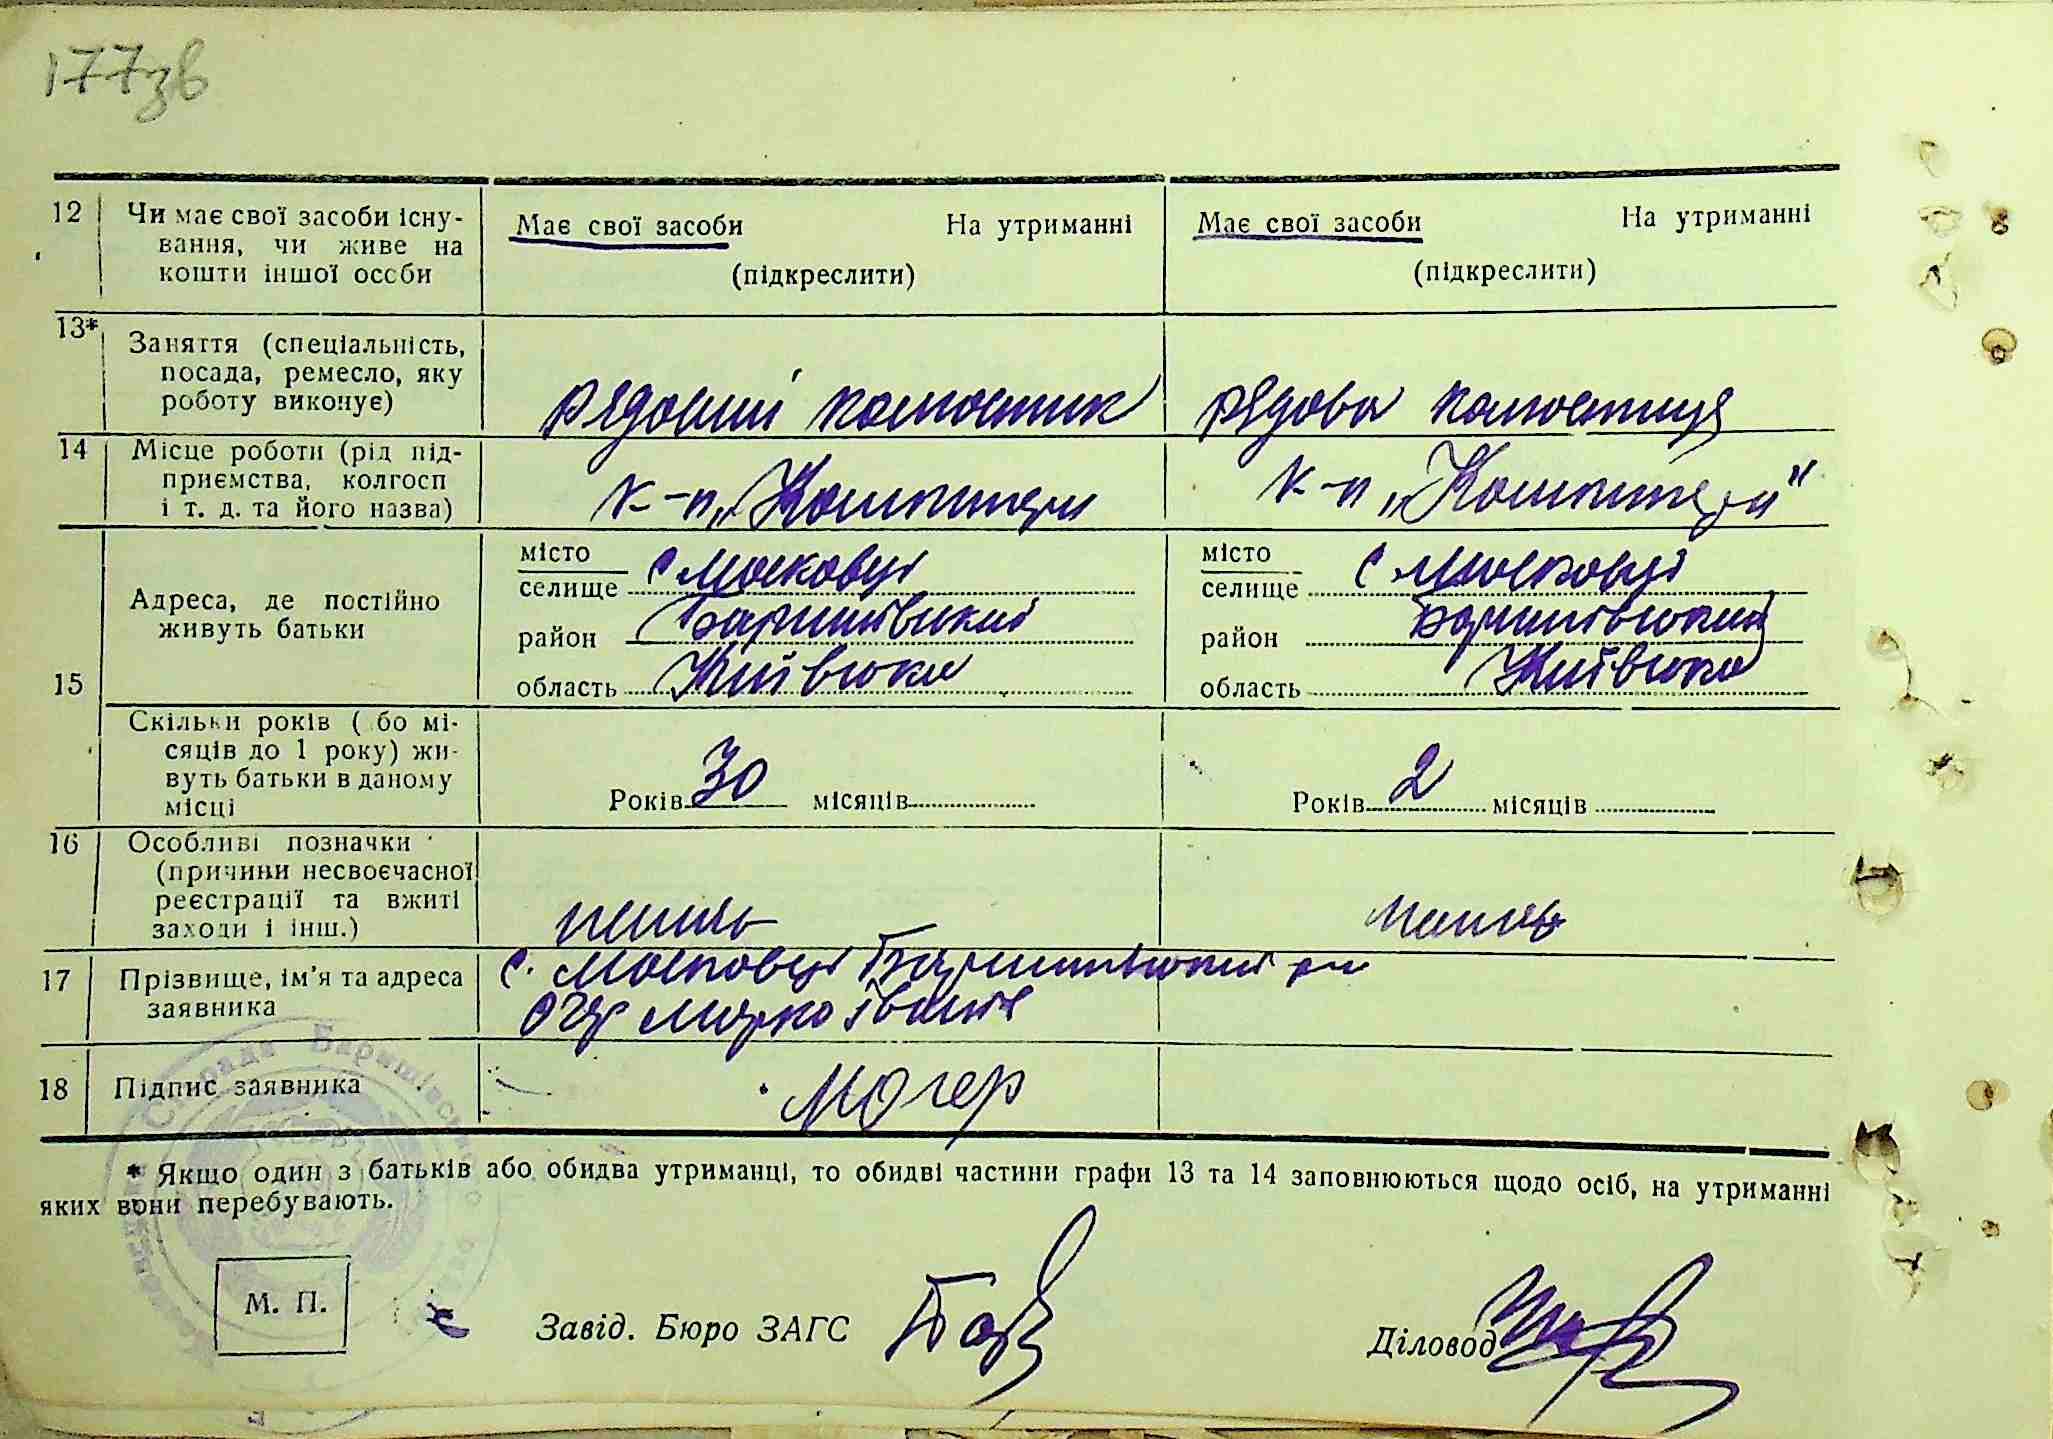 177зв
12 Чи має свої засоби існу-
вання, чи живе на
кошти іншої особи
Має свої засоби На утриманні
(підкреслити)
Має свої засоби На утриманні
(підкреслити)
13* Заняття (спеціальність,
посада, ремесло, яку
роботу виконує)
рядовий колгоспник
рядова колгоспниця
14 Місце роботи (рід під-
приємства, колгосп
і т. д. та його назва)
к-п „Комінтерн
к-п „Комінтерн"
15 Адреса, де постійно
живуть батьки
місто
селище с Масковці
район Баришівський
область Київська
місто
селище с Масковці
район Баришівський
область Київська
Скільки років ( бо мі-
сяців до 1 року) жи-
вуть батьки в даному
місці
Років 30 місяців
Років 2 місяців
16 Особливі позначки
(причини несвоєчасної
реєстрації та вжиті
заходи і інш.)
17 Прізвище, ім'я та адреса
заявника
с. Масковці Баришівський р-н
Марко Іванів
18 Підпис заявника
* Якщо один з батьків або обидва утриманці, то обидві частини графи 13 та 14 заповнюються щодо осіб, на утриманні
яких вони перебувають.
М. П.
Завід. Бюро ЗАГС
Діловод